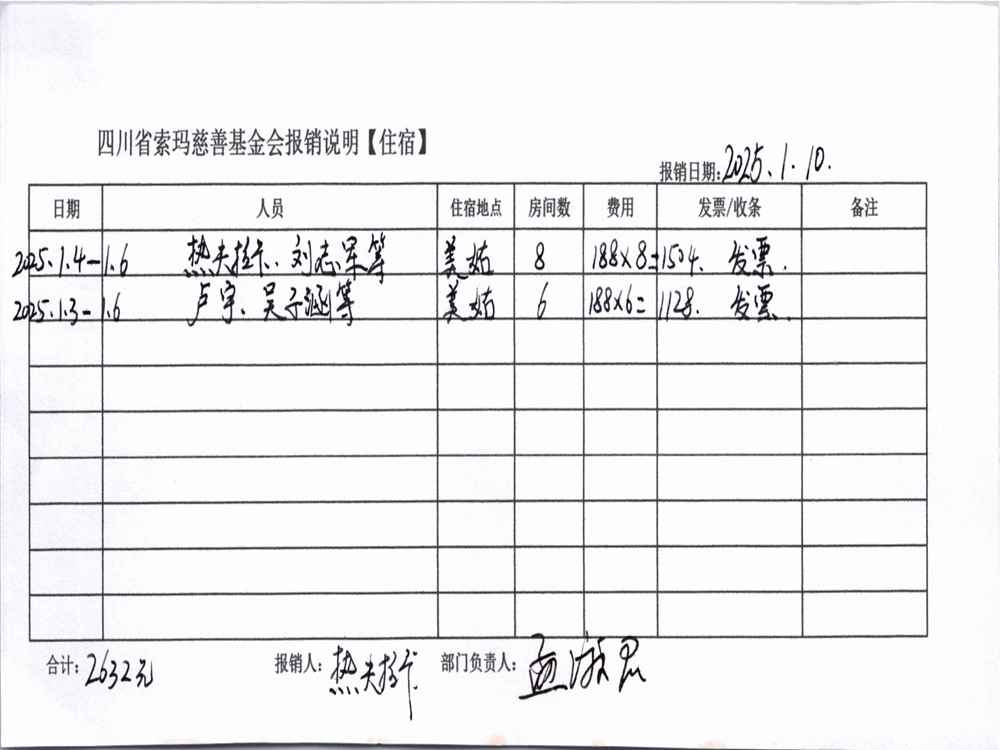 四川省索玛慈善基金会报销说明【住宿】
报销日期:2025.1.10.
日期 人员 住宿地点 房间数 费用 发票/收条 备注
2025.1.4-1.6 热夫拉卡、刘志军等 美姑 8 188×8=1504. 发票.
2025.1.3-1.6 卢宇、吴子涵等 美姑 6 188×6=1128. 发票.
合计:2632元 报销人:热夫拉卡 部门负责人: